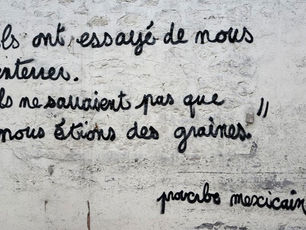 ils ont essayé de nous
enterrer.
ils ne savaient pas que
nous étions des graines."
proverbe mexicain